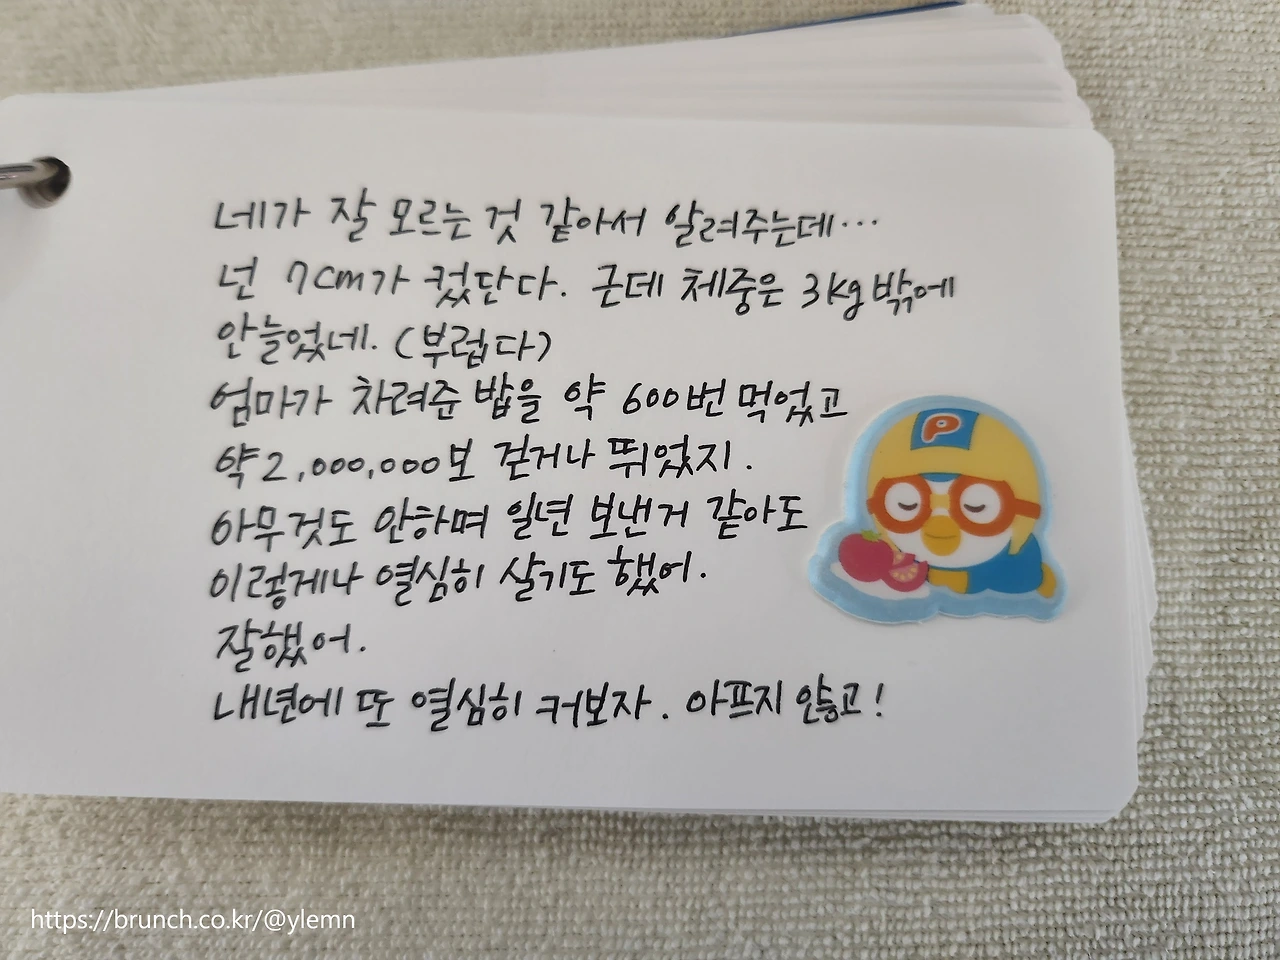 네가 잘 모르는 것 같아서 알려주는데...
넌 7cm가 컸단다. 근데 체중은 3kg밖에
안늘었네. (부럽다)
엄마가 차려준 밥을 약 600번 먹었고
약 2,000,000보 걷거나 뛰었지.
아무것도 안하며 일년 보낸거 같아도
이렇게나 열심히 살기도 했어.
잘했어.
내년에 또 열심히 커보자. 아프지 않고!
P
https://brunch.co.kr/@ylemn